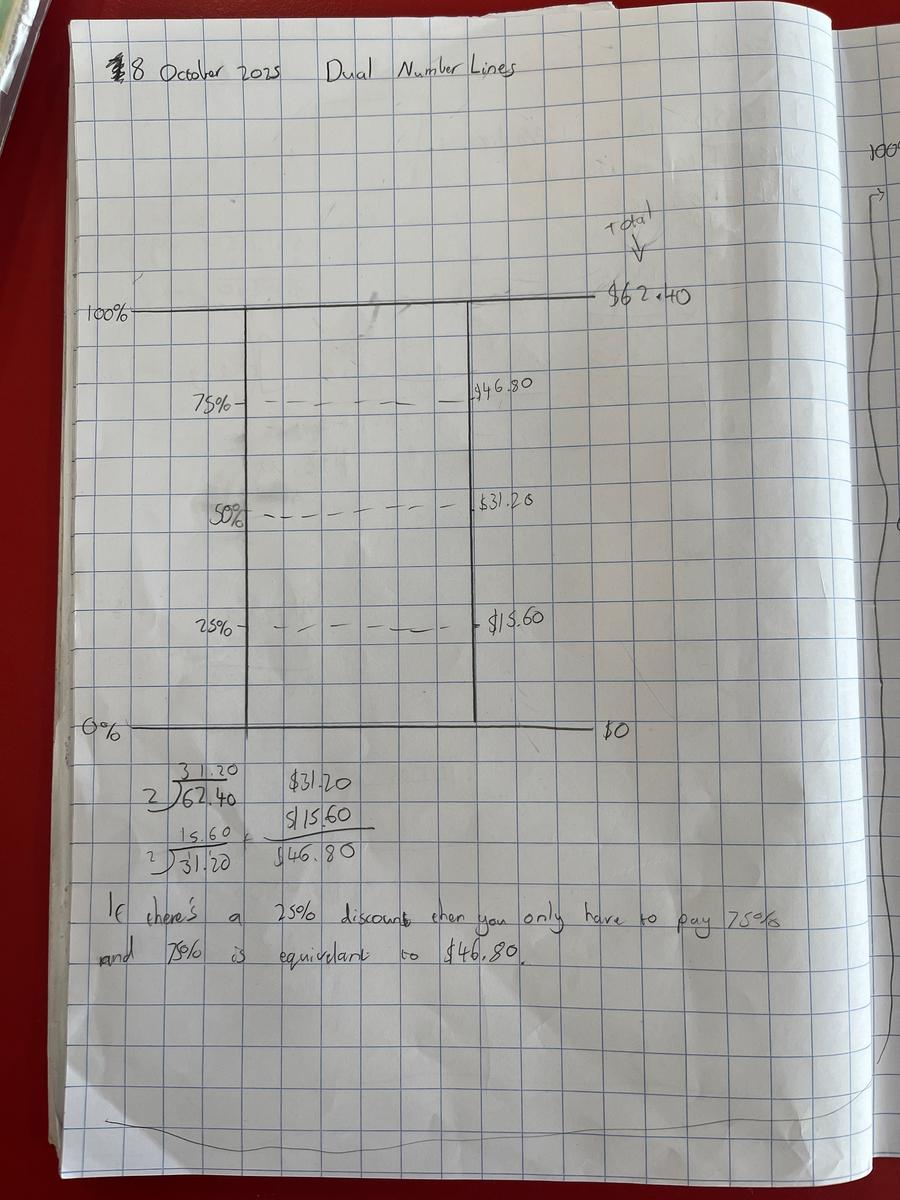 8 October 2025 Dual Number Lines
Total
100% $62.40
75% $46.80
50% $31.20
25% $15.60
0% $0
31.20
2)62.40
15.60
2)31.20
$31.20
$15.60
$46.80
If there's a 25% discount then you only have to pay 75%
and 75% is equivelant to $46.80.
100%